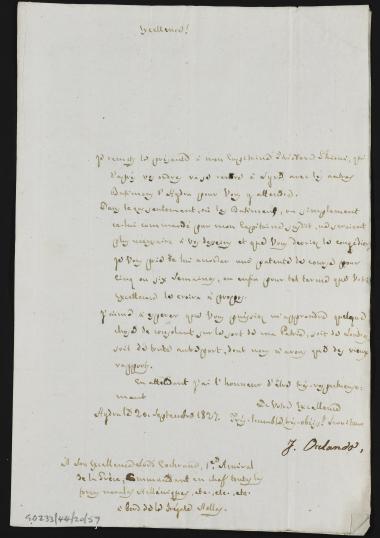 Excellence!
Je remets la présente à mon Capitaine
d'après vos ordres va se rendre à avec les autres
Bâtimens d'Hydra pour Vous y attendre.
Dans le cas seulement, où les Bâtimens, ou simplement
celui commandé par mon Capitaine susdit, ne seroient
plus necessaire à vos desseins et que Vous devriez les congédier,
je Vous prie de lui accorder une patente de course pour
cinq ou six semaines, ou enfin pour tel terme que Votre
Excellence le croira à propos.
J'aime à esperer que Vous puissiez m'apprendre quelque
chose de consolant sur le sort de ma Patrie, soit de Londres
soit de toute autre part, dont nous n'avons que des vieux
rapports.
En attendant j'ai l'honneur d'être très-respectueuse-
mant
De Votre Excellence
Hydra le 20. Septembre 1827. Très-humble très-obéiss. Serviteur
J. Orlando,
A Son Excellence Lord Cochrane, 1er Amiral
de la Grèce, Commandant en chef toutes les
forces navales Helléniques, etc. etc. etc.
à bord de la frégate Hellas.
GD233/44/20/57